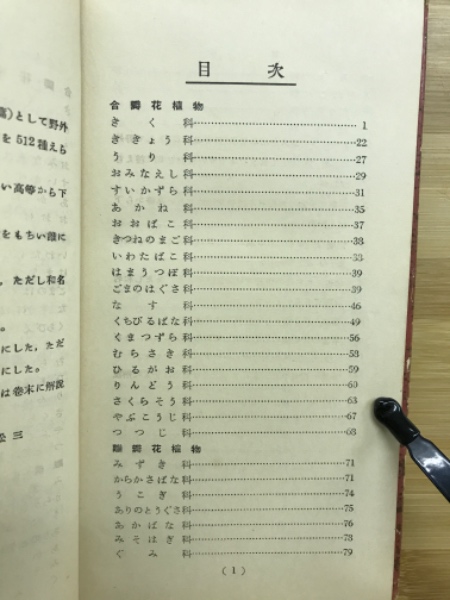 高)として野外
を 512 種えら
い高等から下
をもちい雖に
，ただし和名
。
にした，ただ
にした。
は巻末に解説
三
目 次
合瓣花植物
きく科 1
ききょう科 22
うり科 27
おみなえし科 29
すいかずら科 31
あかね科 35
おおばこ科 37
きつねのまご科 38
いわたばこ科 38
はまうつぼ科 39
ごまのはぐさ科 39
なす科 46
くちびるばな科 49
くまつずら科 56
むらさき科 58
ひるがお科 59
りんどう科 60
さくらそう科 63
やぶこうじ科 67
つつじ科 68
離瓣花植物
みずき科 71
からかさばな科 71
うこぎ科 74
ありのとうぐさ科 75
あかばな科 76
みそはぎ科 78
ぐみ科 79
( 1 )